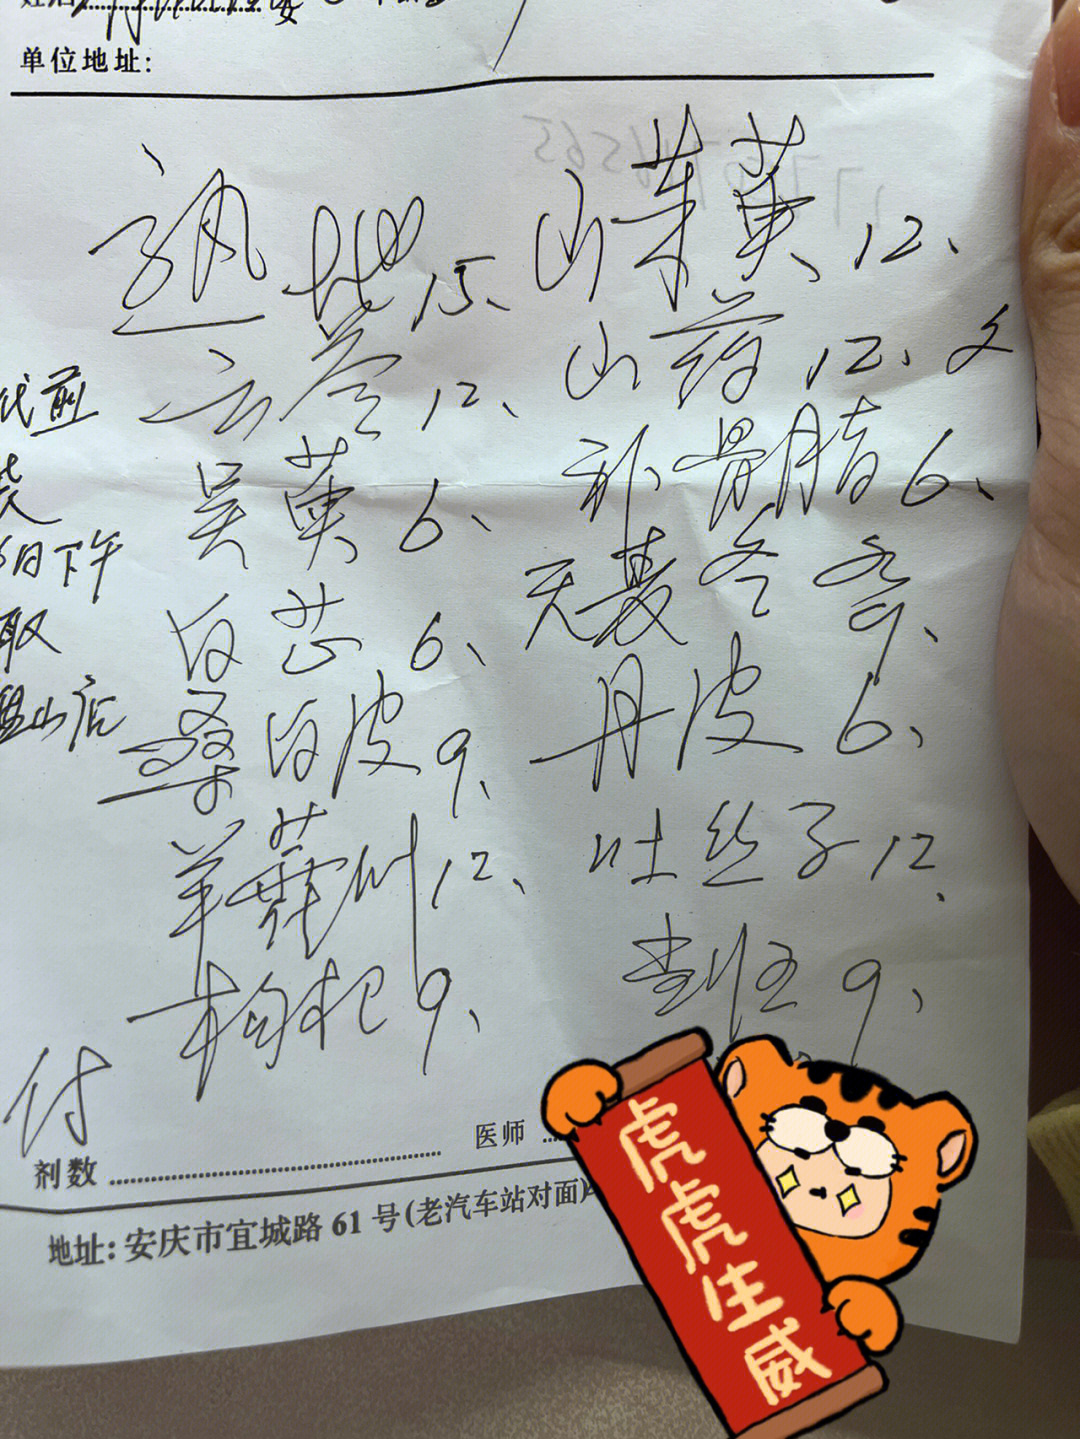 单位地址:
熟地 15、 山茱萸 12、
云苓 12、 山药 12、
吴萸 6、 补骨脂 6、
天麦冬 各 9、
白芷 6、 丹皮 6、
桑白皮 9、
羊藿叶 12、 吐丝子 12、
枸杞 9、 9、
代前
日下午
取
山店
付
剂数
医师
地址: 安庆市宜城路 61 号(老汽车站对面)
虎虎生威